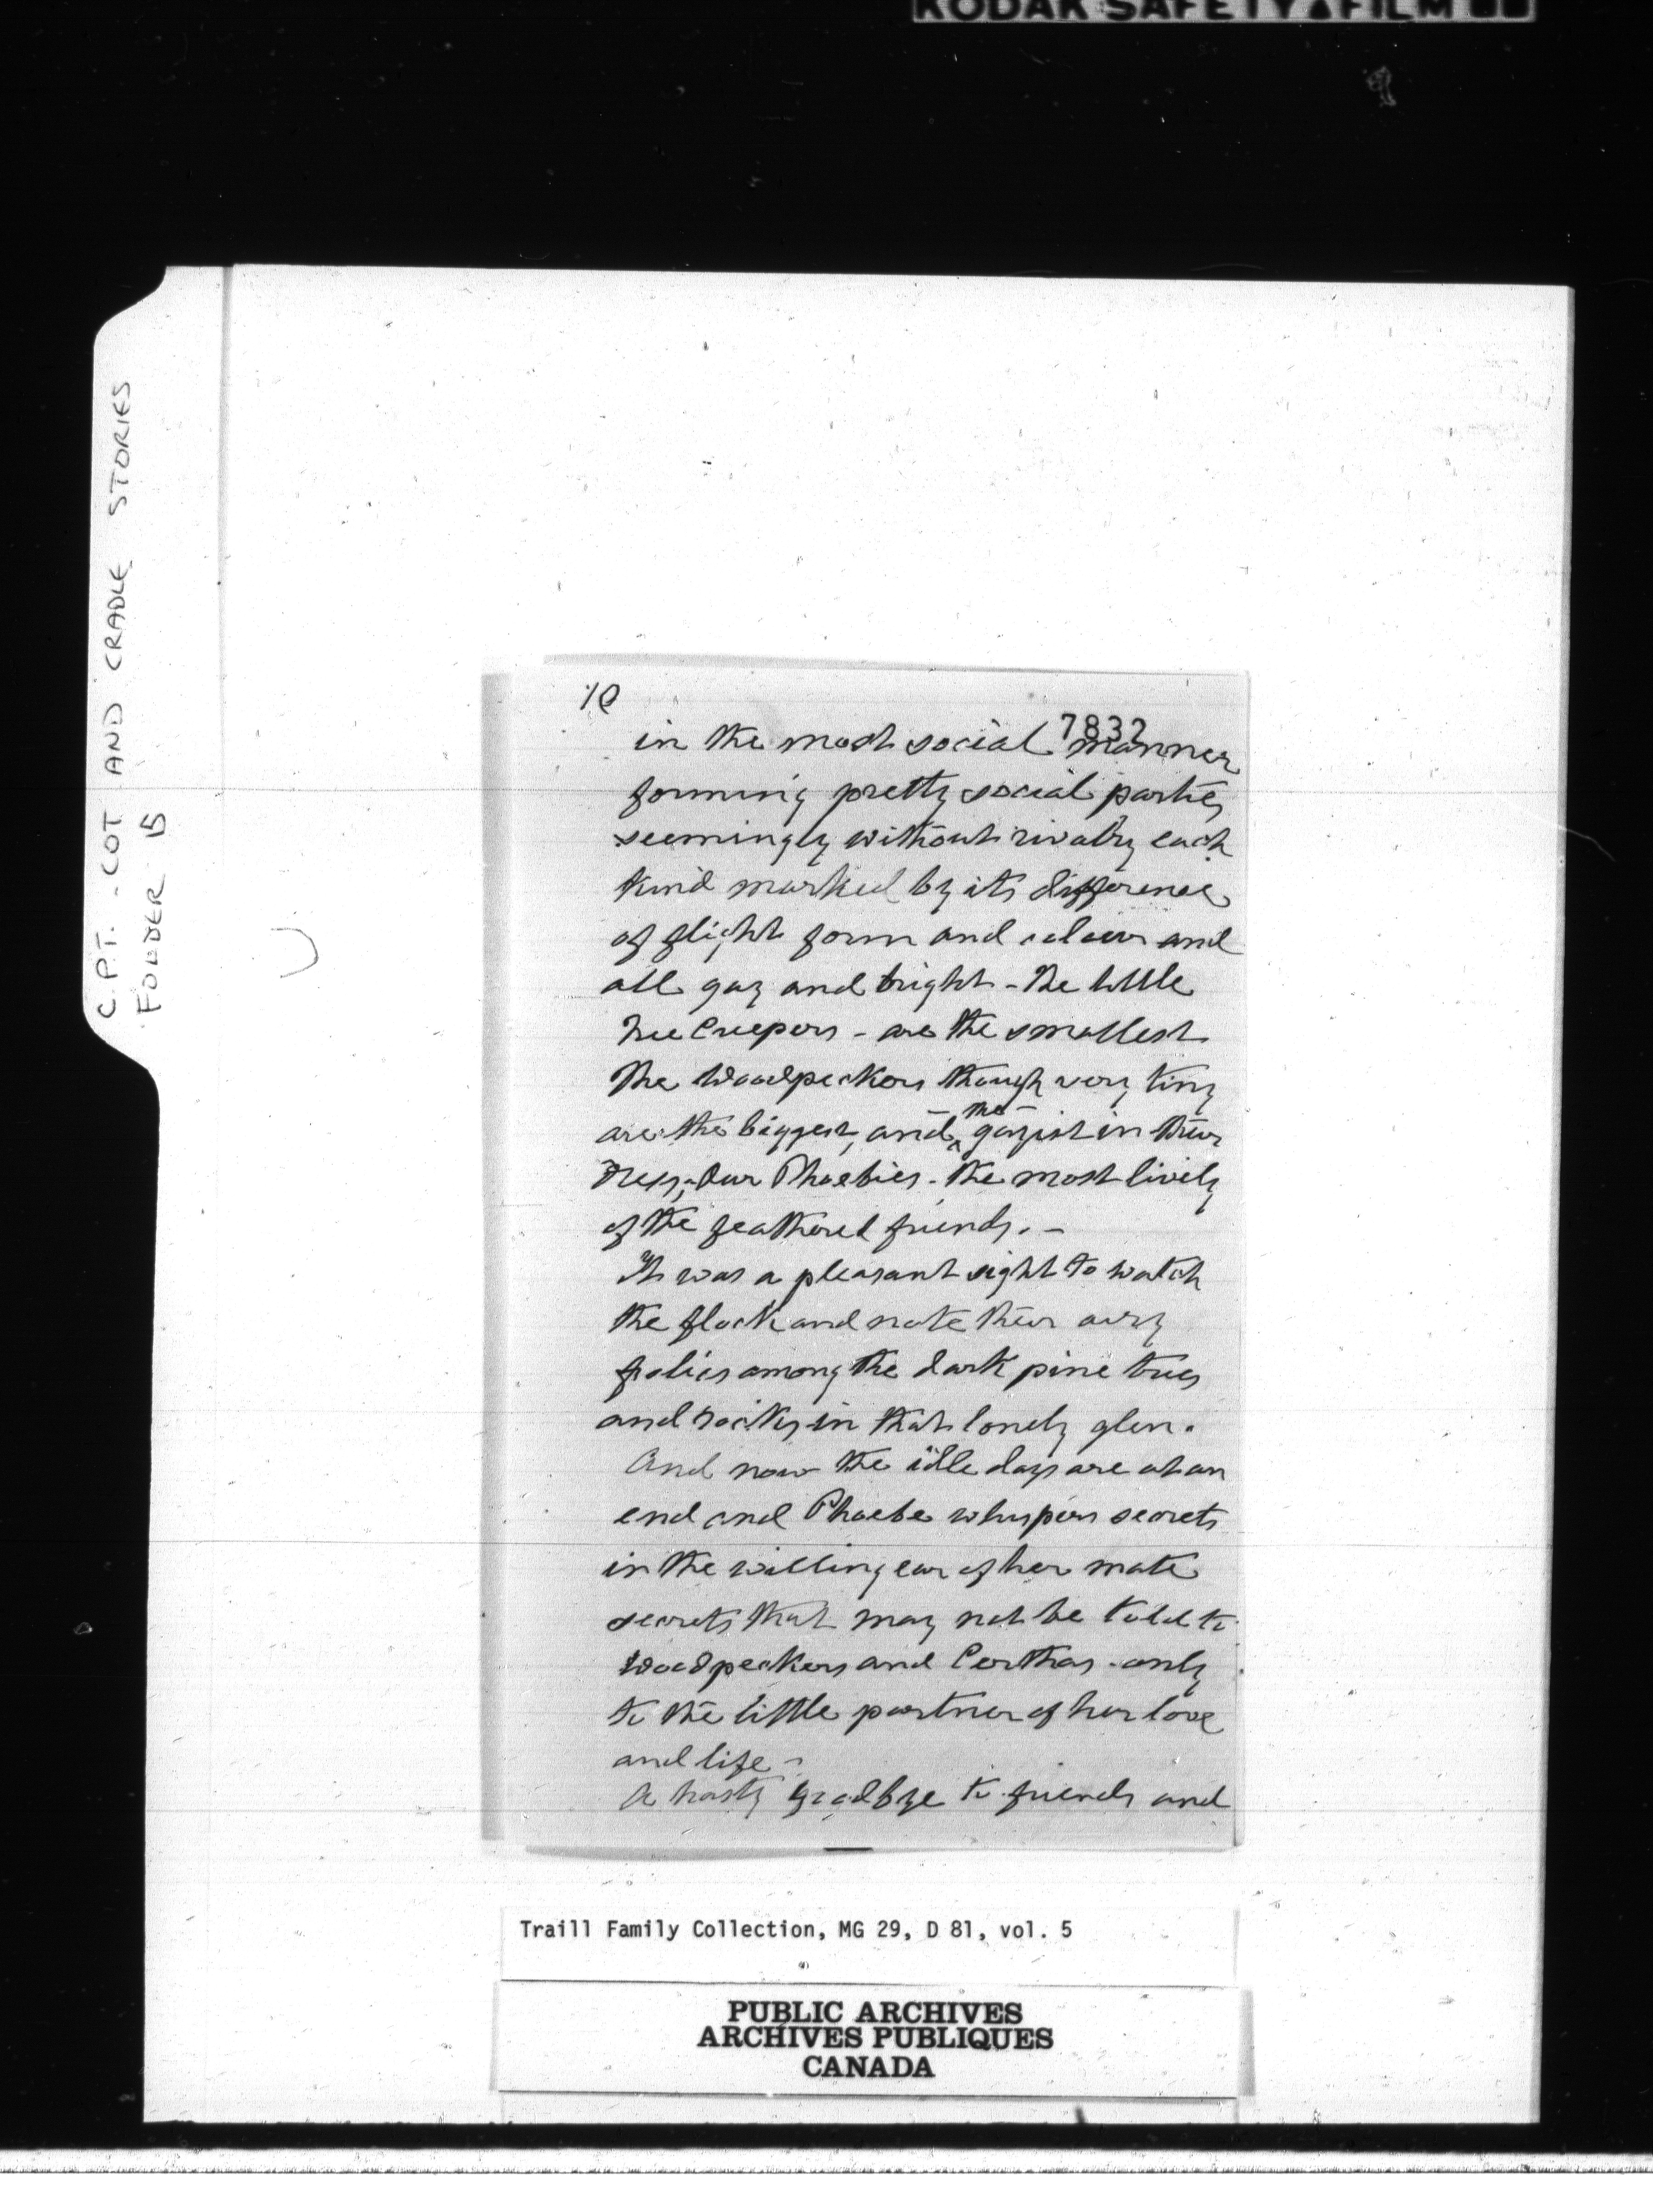 KODAK SAFETY FILM
C.P.T. - COT AND CRADLE STORIES
FOLDER 15
10
7832
in the most social manner
forming pretty social parties
seemingly without rivalry each
kind marked by its difference
of flight form and colour and
all gay and bright - The little
Tree Creepers - are the smallest
The Woodpeckers though very tiny
are the biggest, and the gayist in their
dress, - Our Phoebies - the most lively
of the feathered friends. -
It was a pleasant sight to watch
the flock and note their airy
frolics among the dark pine trees
and rocks in that lonely glen.
And now the idle days are at an
end and Phoebe whispers secrets
in the willing ear of her mate
secrets that may not be told to
Woodpeckers and Certhas - only
to the little partner of her love
and life -
A hasty goodbye to friends and
Traill Family Collection, MG 29, D 81, vol. 5
PUBLIC ARCHIVES
ARCHIVES PUBLIQUES
CANADA